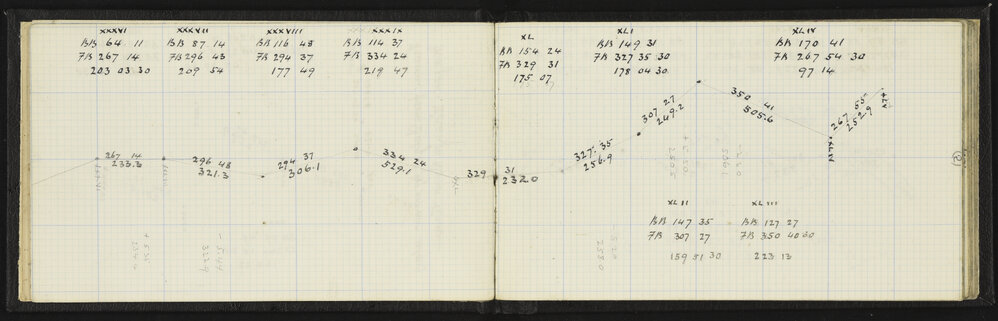 XXXVI
BB 64 11
FB 267 14
203 03 30
XXXVII
BB 87 14
FB 296 48
209 54
XXXVIII
BB 116 48
FB 294 37
177 49
XXXIX
BB 114 37
FB 334 24
219 47
XL
BB 154 24
FB 329 31
175 07
XLI
BB 149 31
FB 327 35 30
178 04 30
XLIV
BB 170 41
FB 267 54 30
97 14
267 14
233.3
296 48
321.3
294 37
306.1
334 24
529.1
329 31
232.0
327 35
256.9
307 27
249.2
350 41
505.6
267 55
252.9
XLIV
XLV
XLII
BB 147 35
FB 307 27
159 51 30
XLIII
BB 127 27
FB 350 40 30
223 13